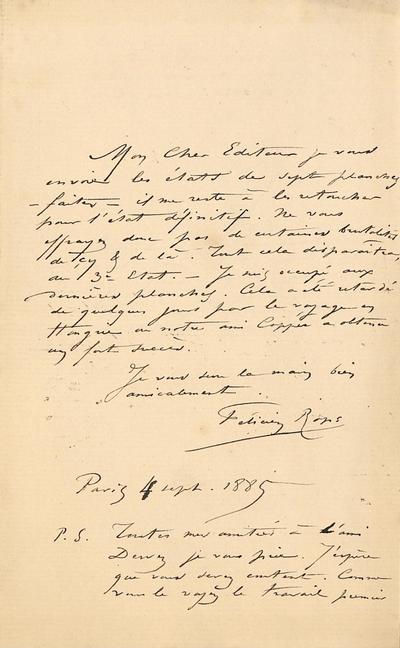 Mon Cher Editeur je vous
envoie les états de sept planches
- faites - il me reste à les retoucher
pour l'état définitif. Ne vous
effrayez donc pas de certaines brutalités
de çy & de là. Tout cela disparaîtra,
au 3me Etat. - Je suis occupé aux
dernières planches. Cela a été retardé
de quelques jours par le voyage en
Hongrie où notre ami Coppée a obtenu
un fort succès.
Je vous serre la main bien
amicalement.
Félicien Rops
Paris 4 sept. 1885
P.S. Toutes mes amitiés à l'ami
je vous prie. J'espère
que vous serez content. Comme
vous le voyez le travail premier